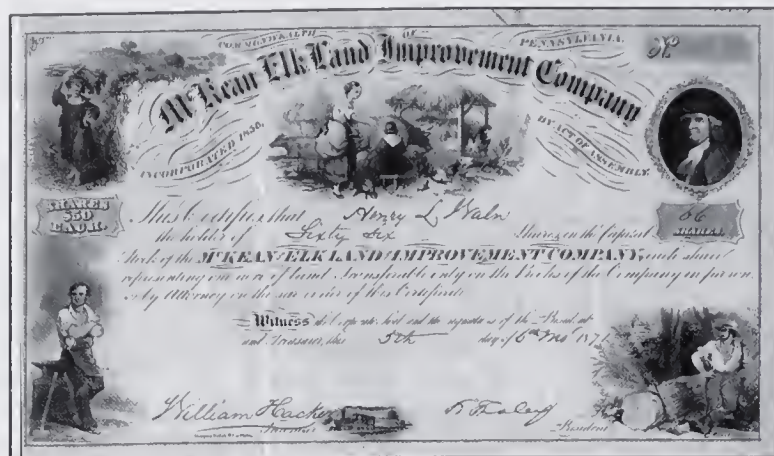 COMMONWEALTH OF PENNSYLVANIA.
No
McKean Elk Land Improvement Company
INCORPORATED 1856. BY ACT OF ASSEMBLY.
SHARES $50 EACH.
66 SHARES.
This Certifies that Henry L Waln
the holder of Sixty Six Shares in the Capital
Stock of the McKEAN ELK LAND IMPROVEMENT COMPANY, each share
representing one acre of Land. Transferable only on the Books of the Company in person
or by Attorney on the surrender of this Certificate.
Witness the Corporate Seal and the signatures of the President
and Treasurer, this 5th day of 6th Mo 187
William Hacker
Treasurer President